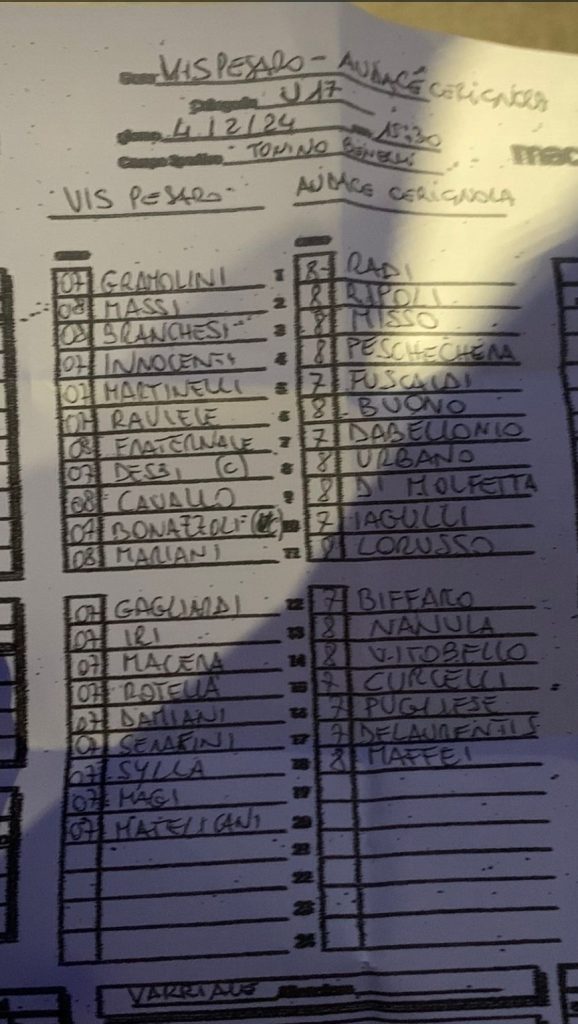 VIS PESARO - AUDACE CERIGNOLA
U17
4/2/24 15:30
Campo Sportivo TONINO BENELLI
mac
VIS PESARO AUDACE CERIGNOLA
07 GRAMOLINI 1 8 RADI
08 MASSI 2 8 RIPOLI
08 BRANCHESI 3 8 MISSO
07 INNOCENTI 4 8 PESCHECHERA
07 MARTINELLI 5 7 FUSCALDI
07 RAULELE 6 8 BUONO
08 FRATERNALE 7 7 DABELLONIO
07 DESSI (C) 8 8 URBANO
08 CAVALLO 9 8 DI MOLFETTA
07 BONAZZOLI 10 7 IAGULLI
08 MARIANI 11 8 LORUSSO
07 GAGLIARDI 12 7 BIFFARO
07 IRI 13 8 NANULA
07 MACERA 14 8 VITOBELLO
07 ROTELLA 15 7 CURCELLI
07 DAMIANI 16 7 PUGLIESE
07 SERAFINI 17 7 DELAURENTIS
07 SYLLA 18 8 MAFFEI
07 MAGI 19
07 MATELICANI 20
21
22
23
24
VARRIALE